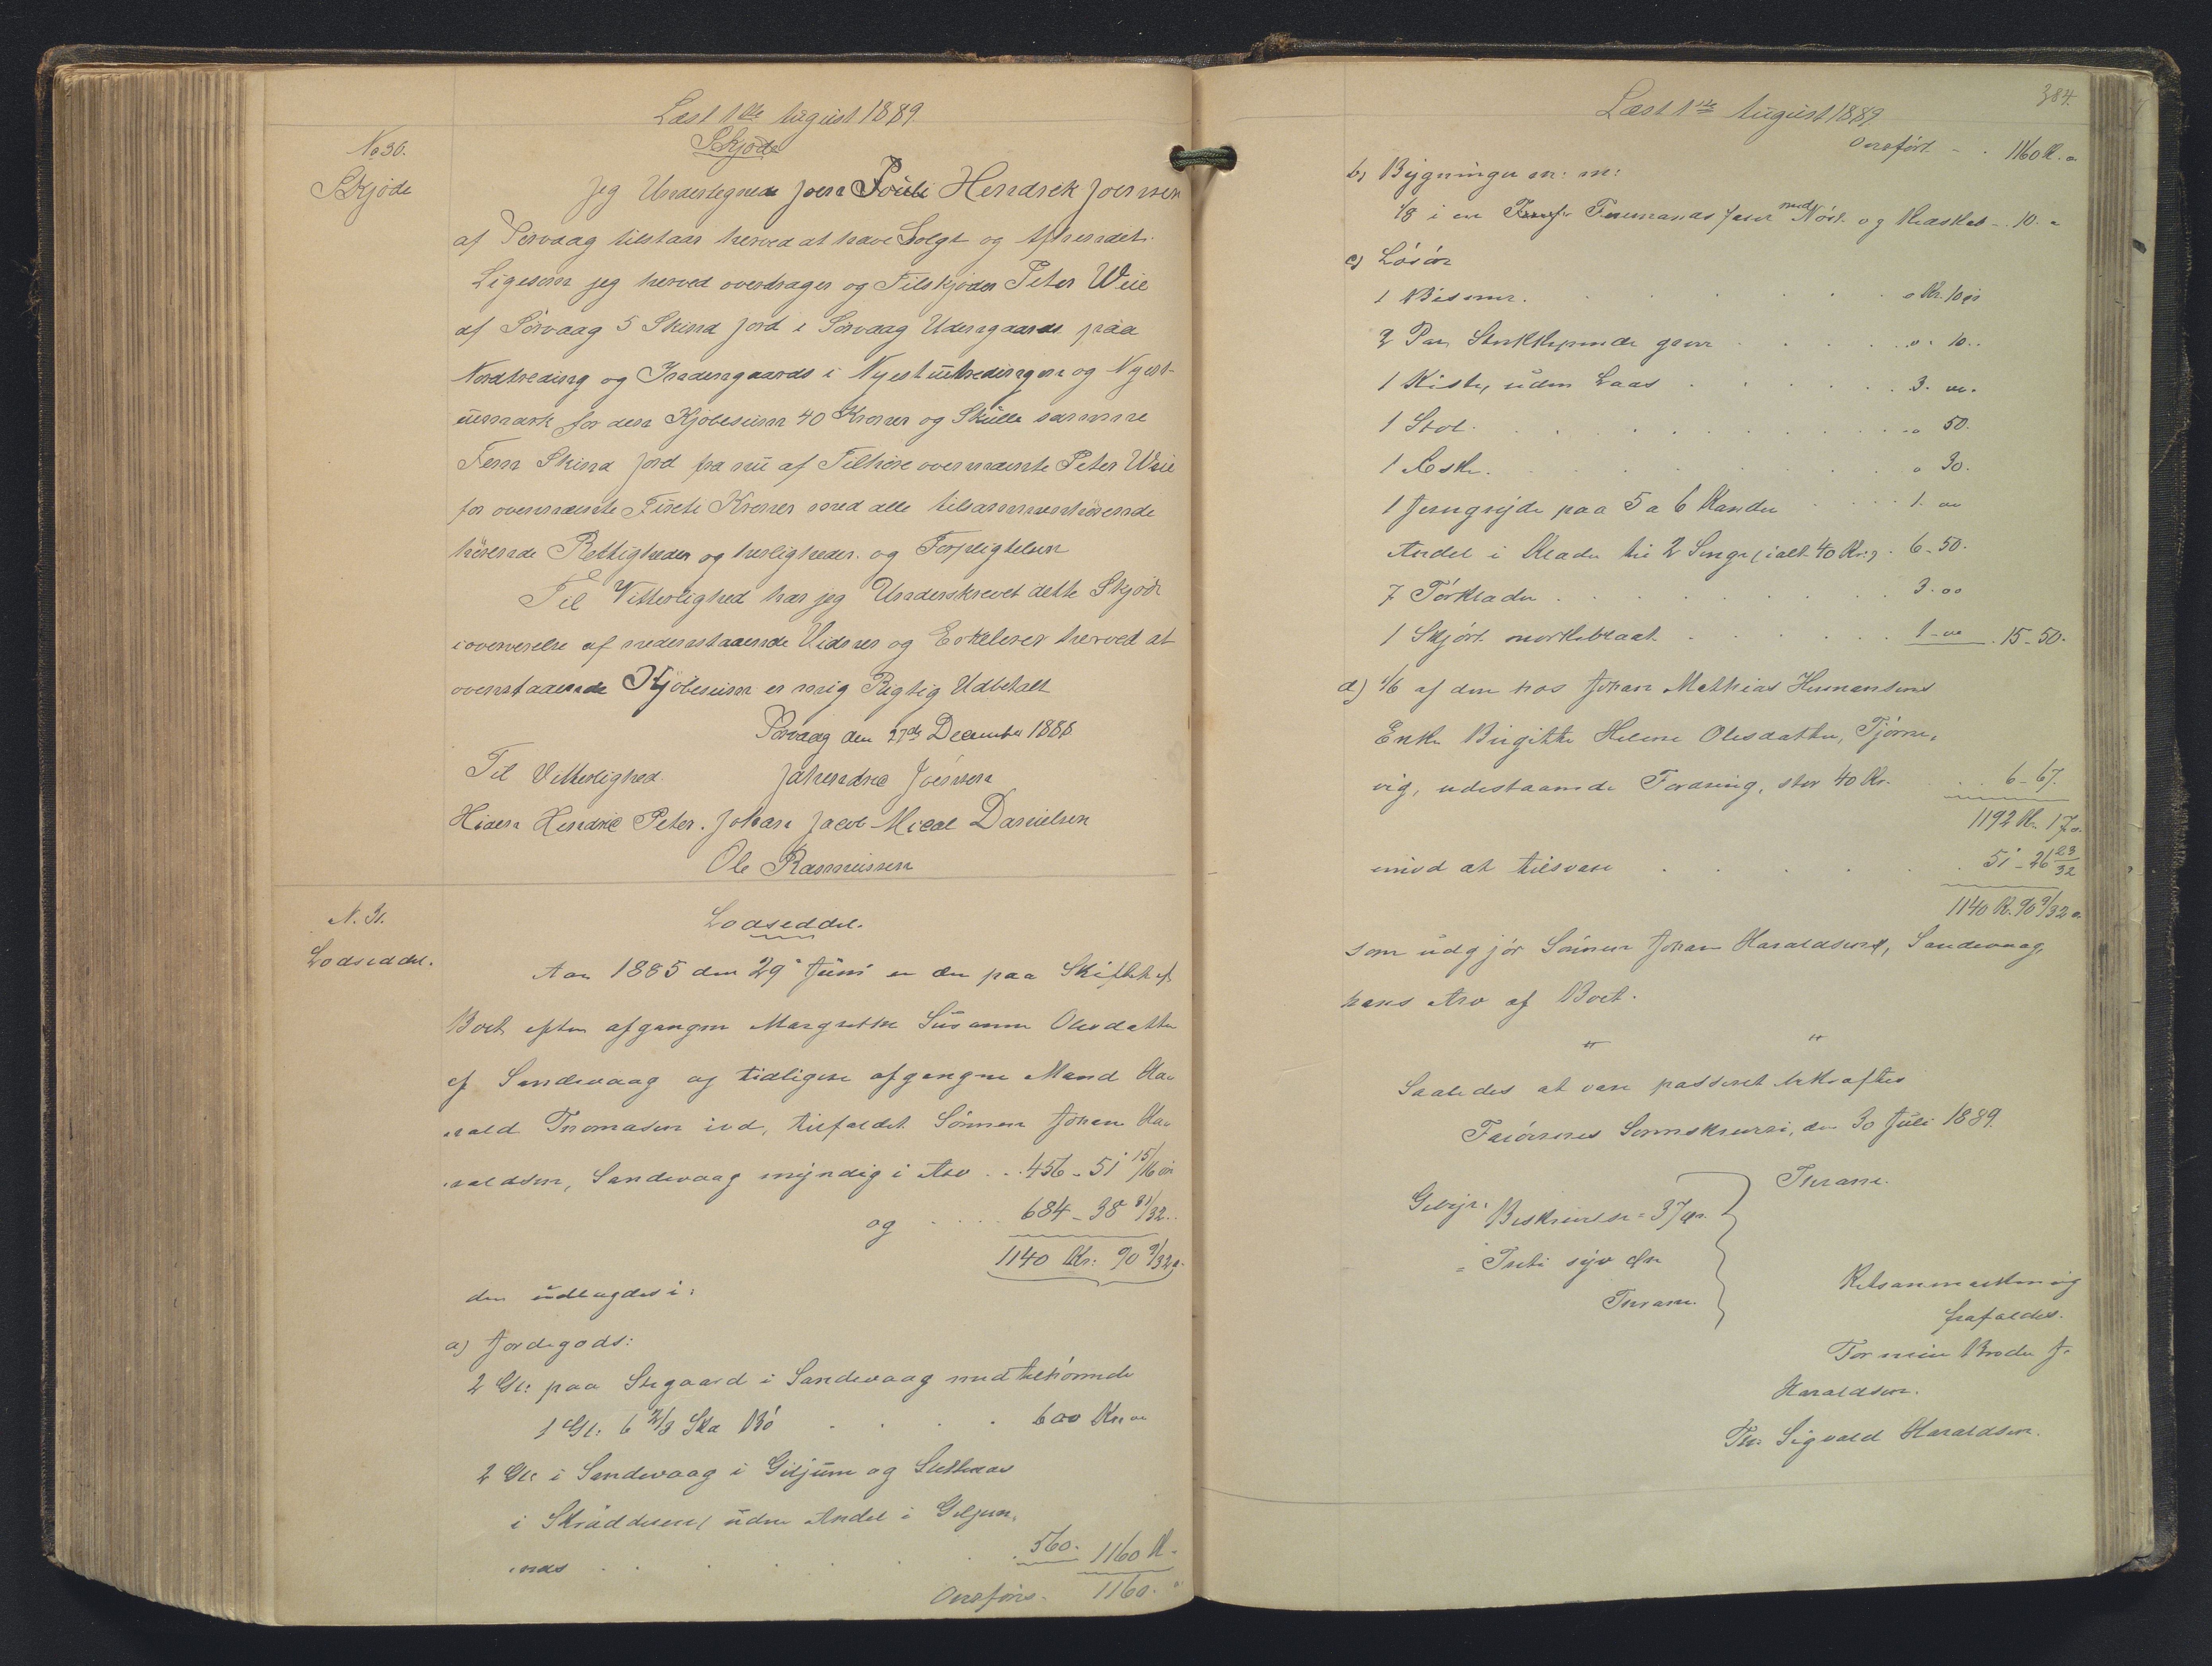 Læst 1ste August 1889
No 30.
Skjøde
Skjøde
Jeg Undertegnede Joen Poule Hendrek Joensen
af Sørvaag tilstaar herved at have Solgt og Afhendet
Ligesom jeg herved overdrager og Tilskjøder Peter Weie
af Sørvaag 5 Skind Jord i Sørvaag Udengaards paa
Nordtreding og Indengaards i Nyestuetredingen og Nyest-
uemark for den Kjøbesum 40 Kroner og Skulle samme
Fem Skind Jord fra nu af Tilhøre overnævnte Peter Weie
for overnævnte Fireti Kroner med alle tilsammenhørende
hørende Rettigheder og herligheder og Forpligtelsen
Til Vitterlighed har jeg Underskrevet dette Skjøde
i overværelse af nedenstaaende Vidner og Erklerer herved at
ovenstaaende Kjøbesum er mig Rigtig Udbetalt
Sørvaag den 27de December 1888
Til Vitterlighed. Johendrec Joensen
Hiden Hendric Peter. Johan Jacob Mical Danielsen
Ole Rasmussen
N. 31.
Lodseddel.
Lodseddel.
Aar 1885 den 29' Juni er der paa Skiftet ef
Boet efter afgangen Margrethe Susanne Olesdatter
af Sandevaag og tidligere afgangne Mand Ha-
rald Thomasen ibd, tilfaldet Sønnen Johan Ha-
raldsen, Sandevaag myndig i Arv . . 456 - 51 15/16 ør
og . . . . 684 - 38 11/32 . .
1140 Kr: 90 9/32 ø.
der udlagdes i:
a) Jordegods:
2 Gl: paa Stegaard i Sandevaag med tilhørende
1 Gl: 6 2/3 Ska Bø . . . . 600 Kr. oo
2 Gl: i Sandevaag i Giljum og Slettenes
i Skrádderen, uden Andel i Giljum,
nes . . . . . . 560. 1160 K -
Overføres. 1160. "
384.
Læst 1ste August 1889
Overført - . 1160 K. o
b) Bygninger m: m:
1/8 i en Fiiremands Faer med Nóst og Redskab - . 10. -
c) Lósóre
1 Bismer. . . . . o Kr. 10 ør
2 Par Stokklyppende garn . . . . o . 10. .
1 Kiste, uden Laas . . . . . 3. oo.
1 Stol. . . . . . o 50.
1 Æske. . . . . o 30.
1 Jerngryde paa 5 a 6 Kander . . . 1. oo
Andel i Klæder til 2 Senge (ialt 40 Kr:) . 6 - 50.
7 Tórklæder . . . . . 3. oo
1 Skjørt morkeblaat . . . . 1 - oo . 15 - 50.
d) 1/6 af den hos Johan Mathias Hermansens
Enke Birgitte Helene Olesdatter, Tjørne-
vig, udestaaende Fordring, stor 40 Kr. . 6 - 67.
1192 Kr. 17 ø.
imod at tilsvare . . . . . 51 - 26 23/32
1140 K. 90 9/32 ø.
som udgjór Sónnen Johan Haraldsens, Sandevaag,
hans Arv af Boet.
" "
Saaledes at være passeret bekræftes
Færøernes Sorenskriveri, den 30 Juli 1889.
Thrane.
Gebyr:
Beskrivelse = 37 ør.
= Treti syv Øre
Thrane.
Retsanmærkning
frafaldes.
For min Broder J.
Haraldsen.
Th: Sigvald Haraldsen.